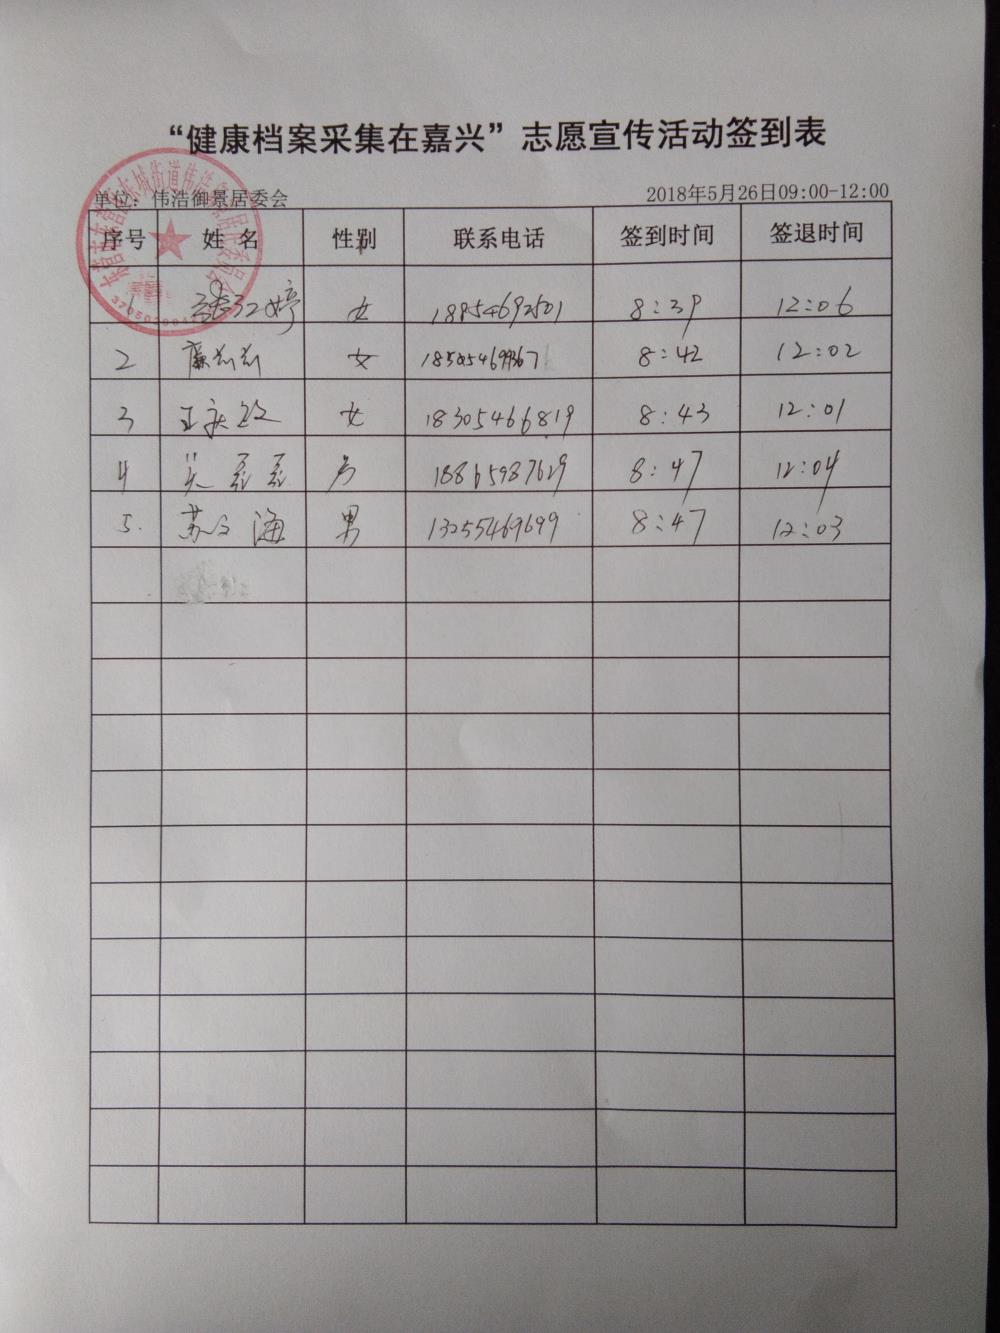 “健康档案采集在嘉兴”志愿宣传活动签到表
单位：伟浩御景居委会 2018年5月26日09:00-12:00
序号 姓 名 性别 联系电话 签到时间 签退时间
1 张江婷 女 18954692501 8:39 12:06
2 女 8:42 12:02
3 王庆敏 女 18305466819 8:43 12:01
4 吴磊磊 男 18865987629 8:47 12:04
5. 苏文海 男 13255469699 8:47 12:03